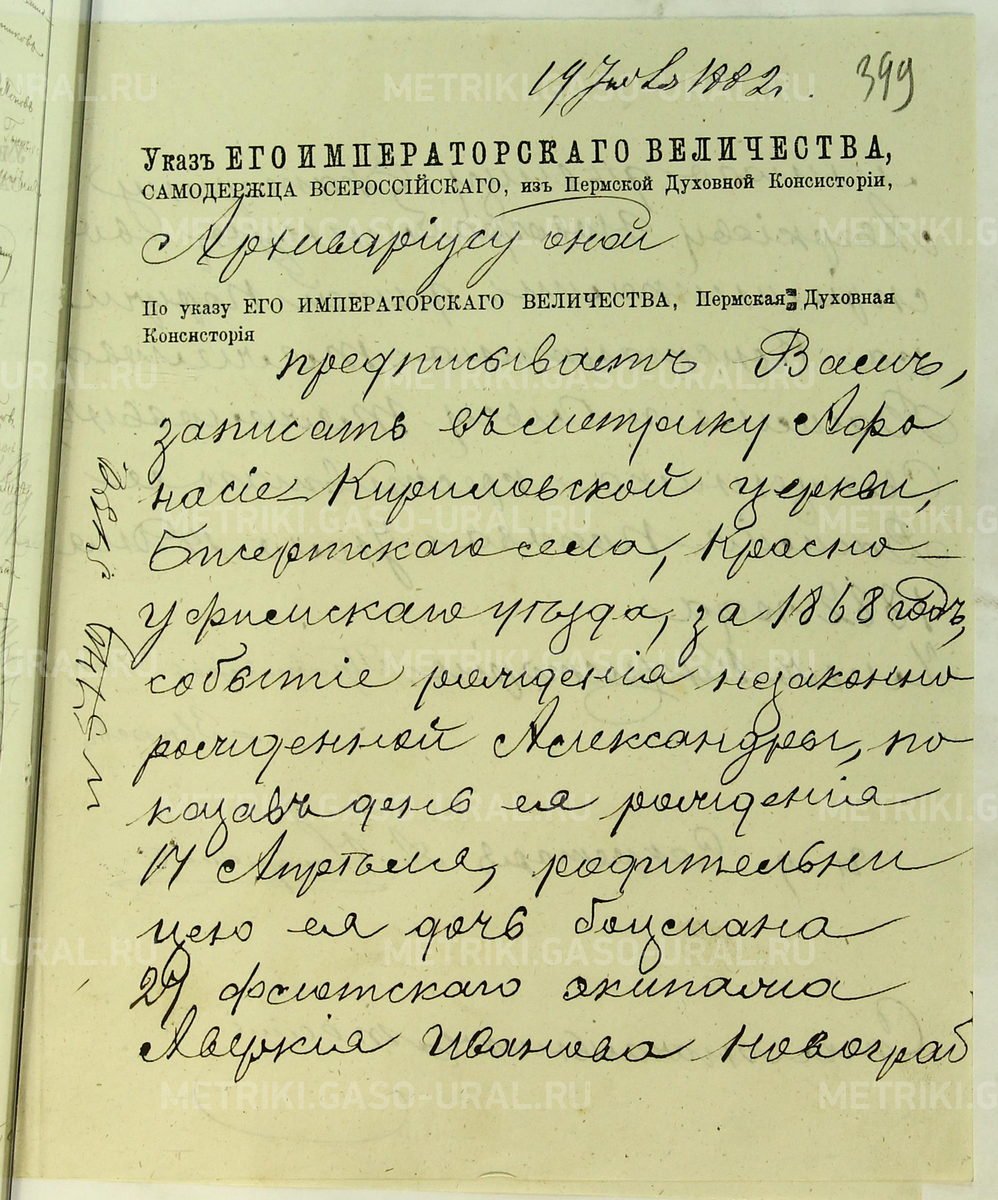 19 Ноября 1882 г.
399
Указъ ЕГО ИМПЕРАТОРСКАГО ВЕЛИЧЕСТВА,
САМОДЕРЖЦА ВСЕРОССІЙСКАГО, изъ Пермской Духовной Консисторіи,
Архиваріусу оной
По указу ЕГО ИМПЕРАТОРСКАГО ВЕЛИЧЕСТВА, Пермская Духовная
Консисторія
предписываетъ Вамъ,
записать въ метрику Афо
насіе-Кириловской церкви,
Бисертскаго села, Красно-
уфимскаго уѣзда, за 1868 годъ,
событіе рожденія незаконно
рожденной Александры, по
казавъ день ея рожденія
17 Апрѣля, родительни
цею ея дочь боцмана
27 флотскаго экипажа
Аверкія Иванова Новограб
METRIKI.GASO-URAL.RU